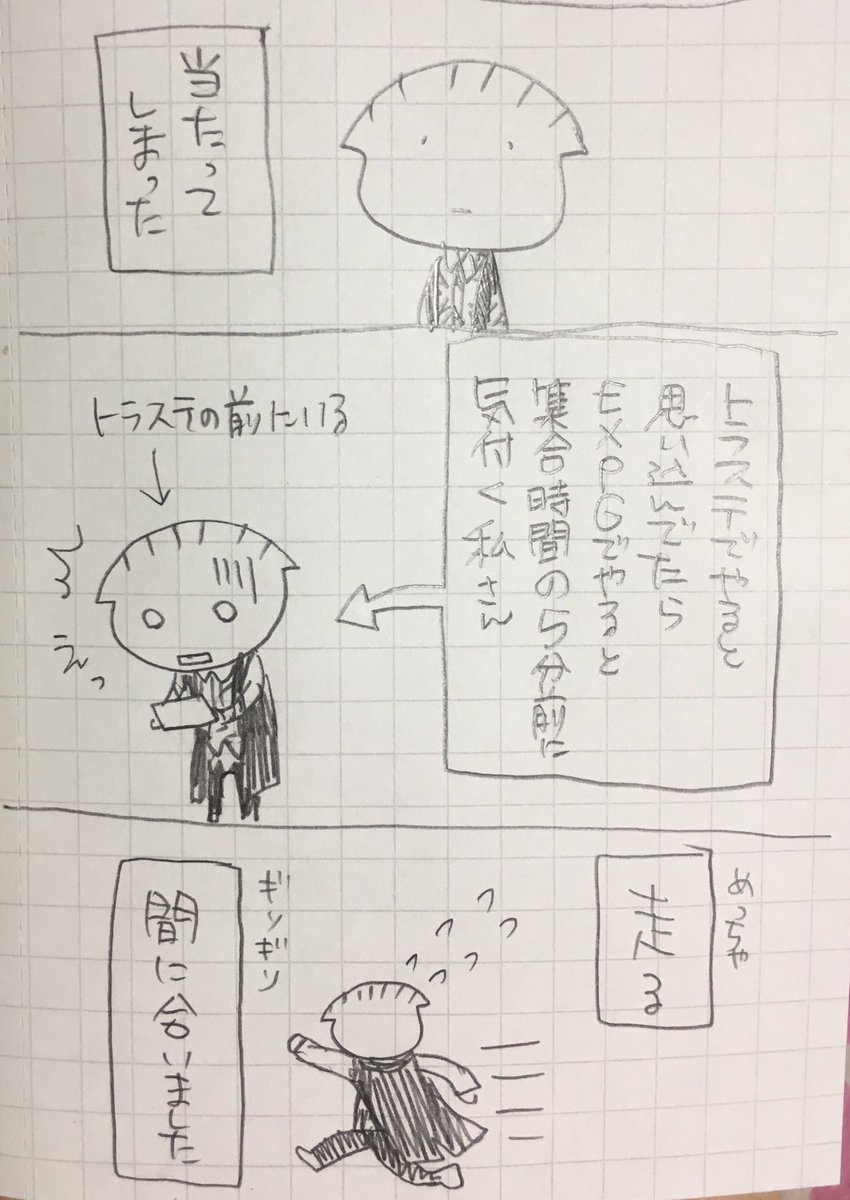 当たって
しまった
トラステでやると
思い込んでたら
EXPGでやると
集合時間の5分前に
気付く私さん
トラステの前にいる
えっ
めっちゃ
走る
ギリギリ
間に合いました